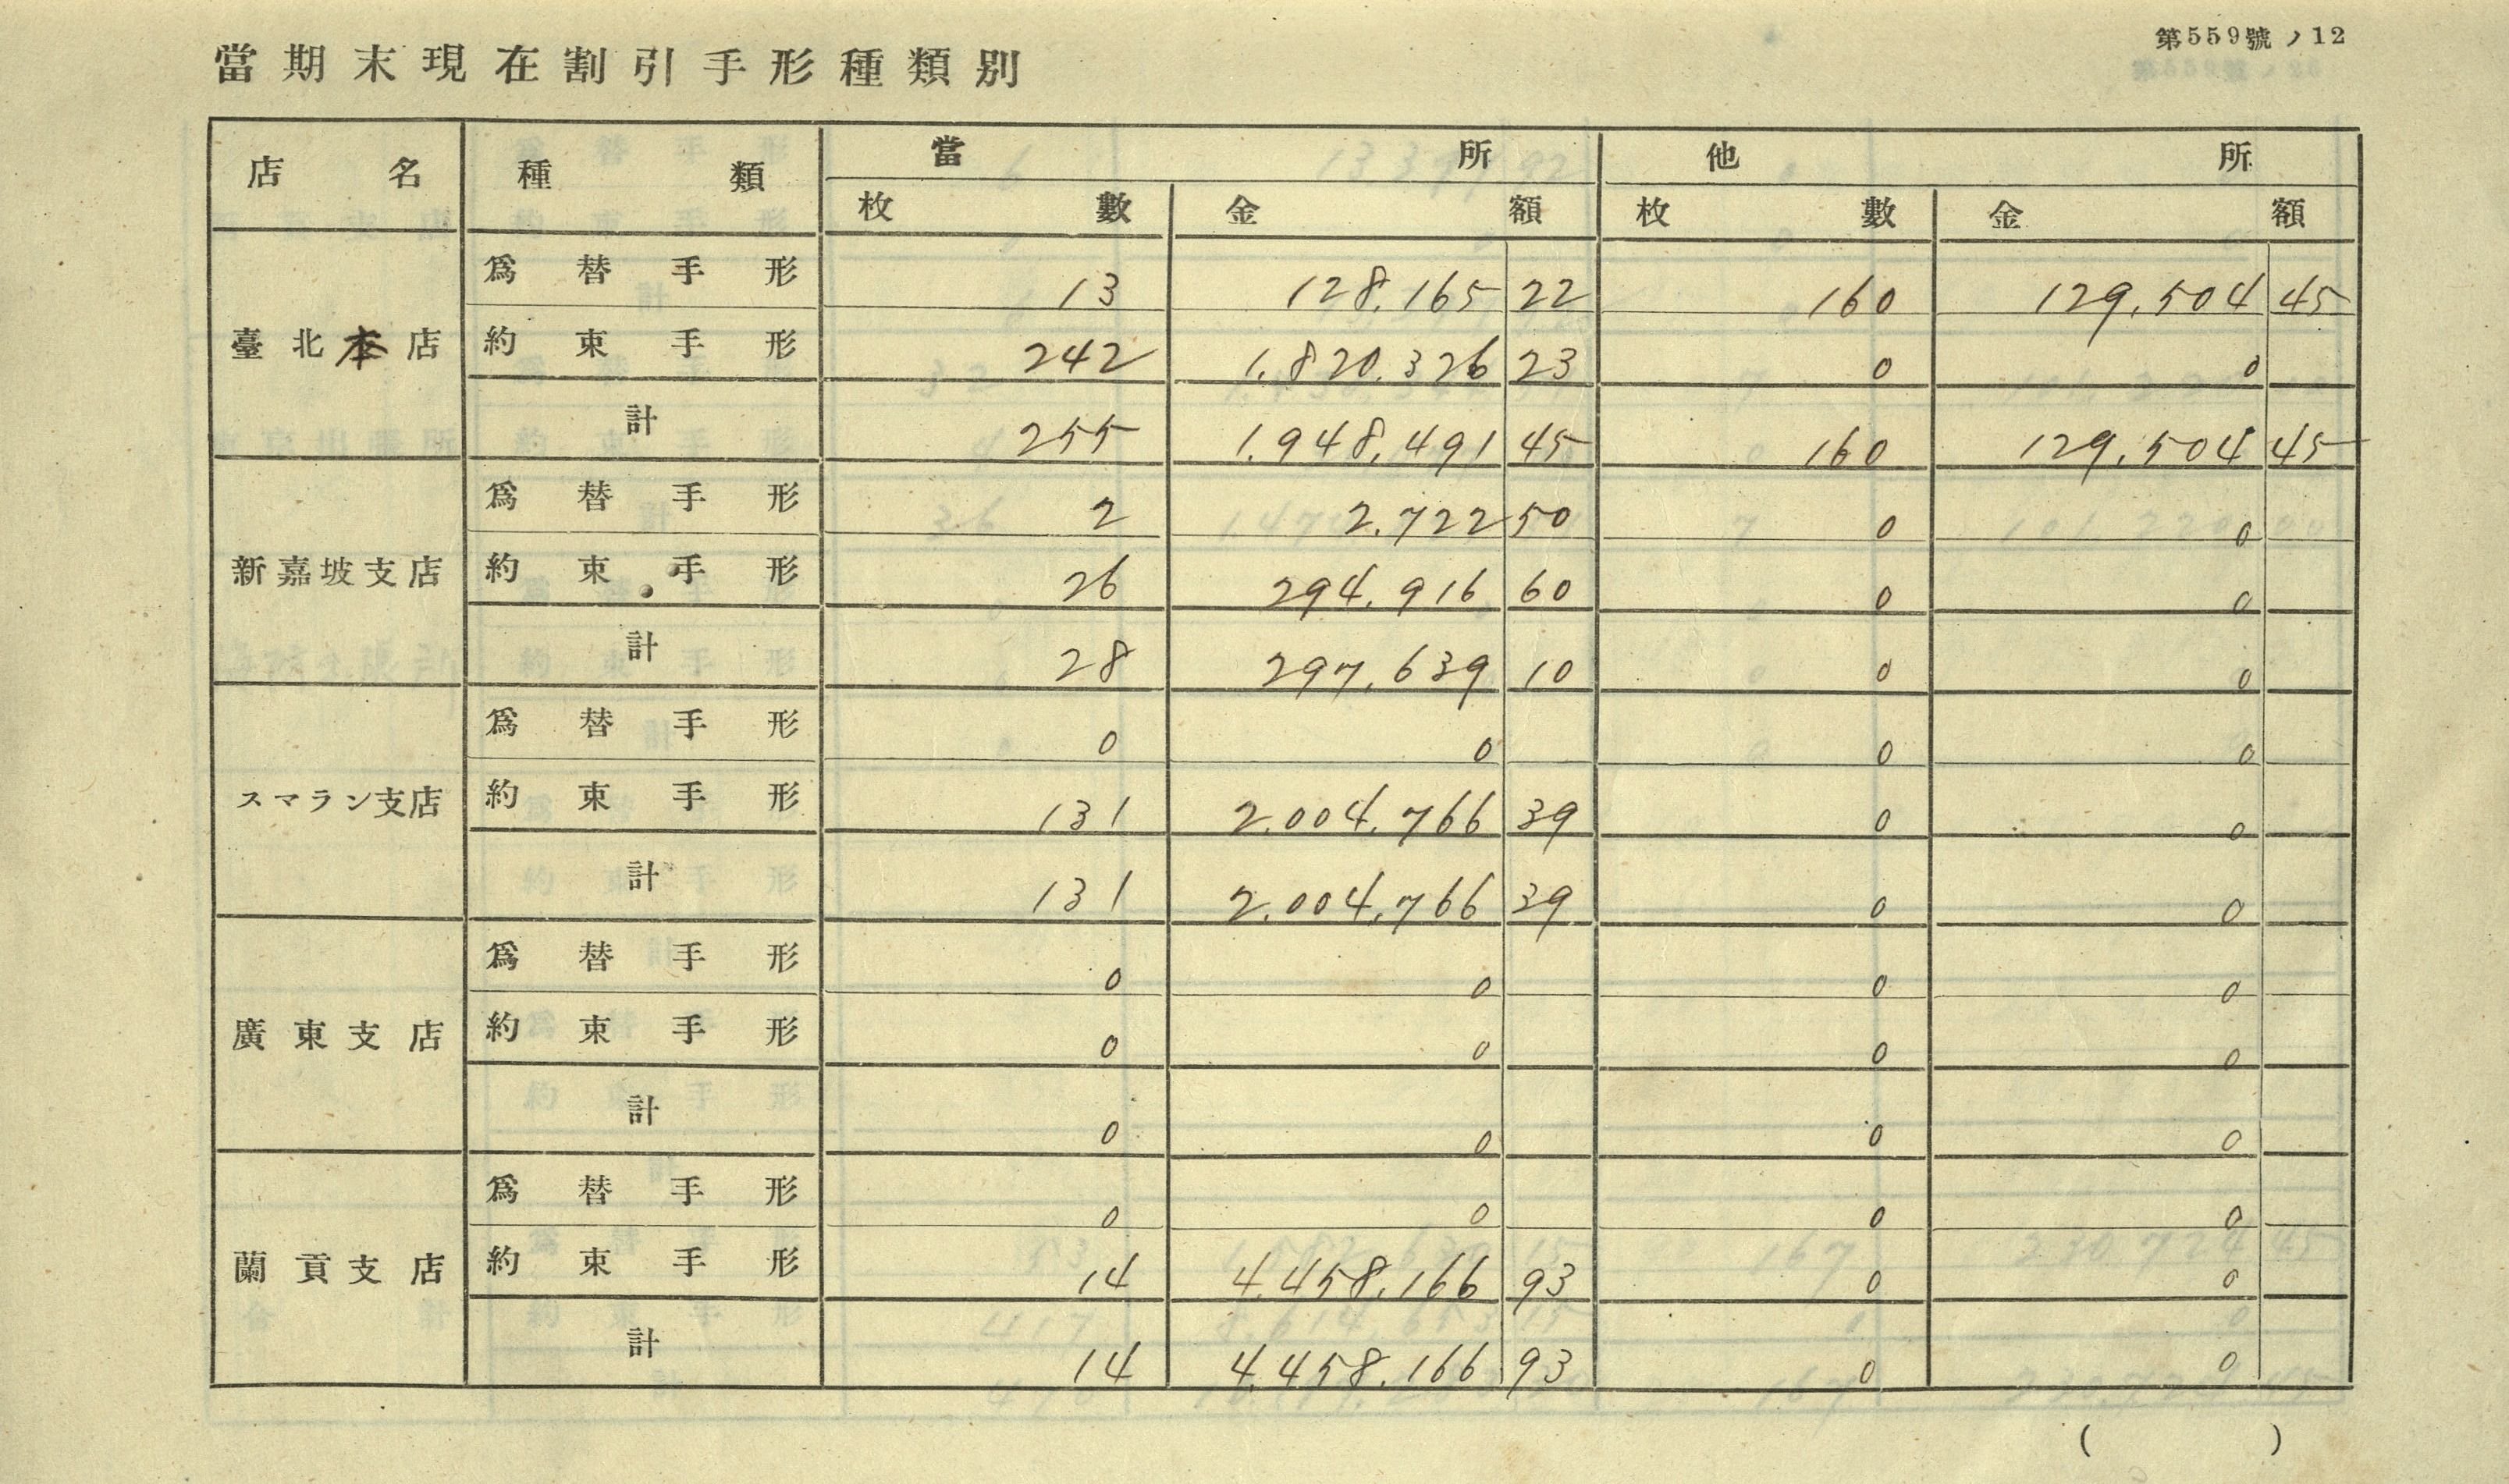 第559號ノ12
當期末現在割引手形種類別
店名 種類 當所 他所
枚數 金額 枚數 金額
爲替手形 13 128,165 22 160 129,504 45
臺北本店 約束手形 242 1,820,326 23 0 0
計 255 1,948,491 45 160 129,504 45
爲替手形 2 2,722 50 0 0
新嘉坡支店 約束手形 26 294,916 60 0 0
計 28 297,639 10 0 0
爲替手形 0 0 0 0
スマラン支店 約束手形 131 2,004,766 39 0 0
計 131 2,004,766 39 0 0
爲替手形 0 0 0 0
廣東支店 約束手形 0 0 0 0
計 0 0 0 0
爲替手形 0 0 0 0
蘭貢支店 約束手形 14 4,458,166 93 0 0
計 14 4,458,166 93 0 0
( )